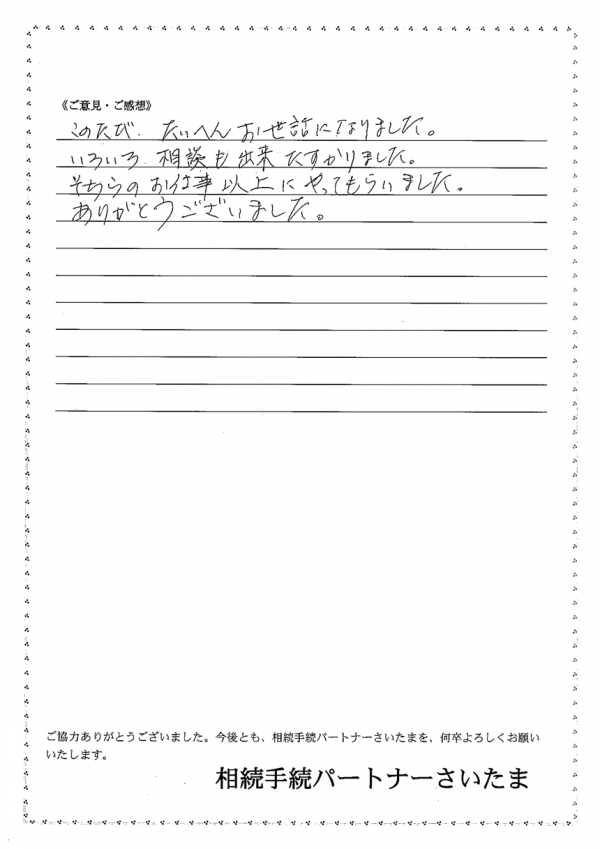 《ご意見・ご感想》
このたび、たいへんお世話になりました。
いろいろ相談も出来たすかりました。
そちらのお仕事以上にやってもらいました。
ありがとうございました。
ご協力ありがとうございました。今後とも、相続手続パートナーさいたまを、何卒よろしくお願い
いたします。
相続手続パートナーさいたま